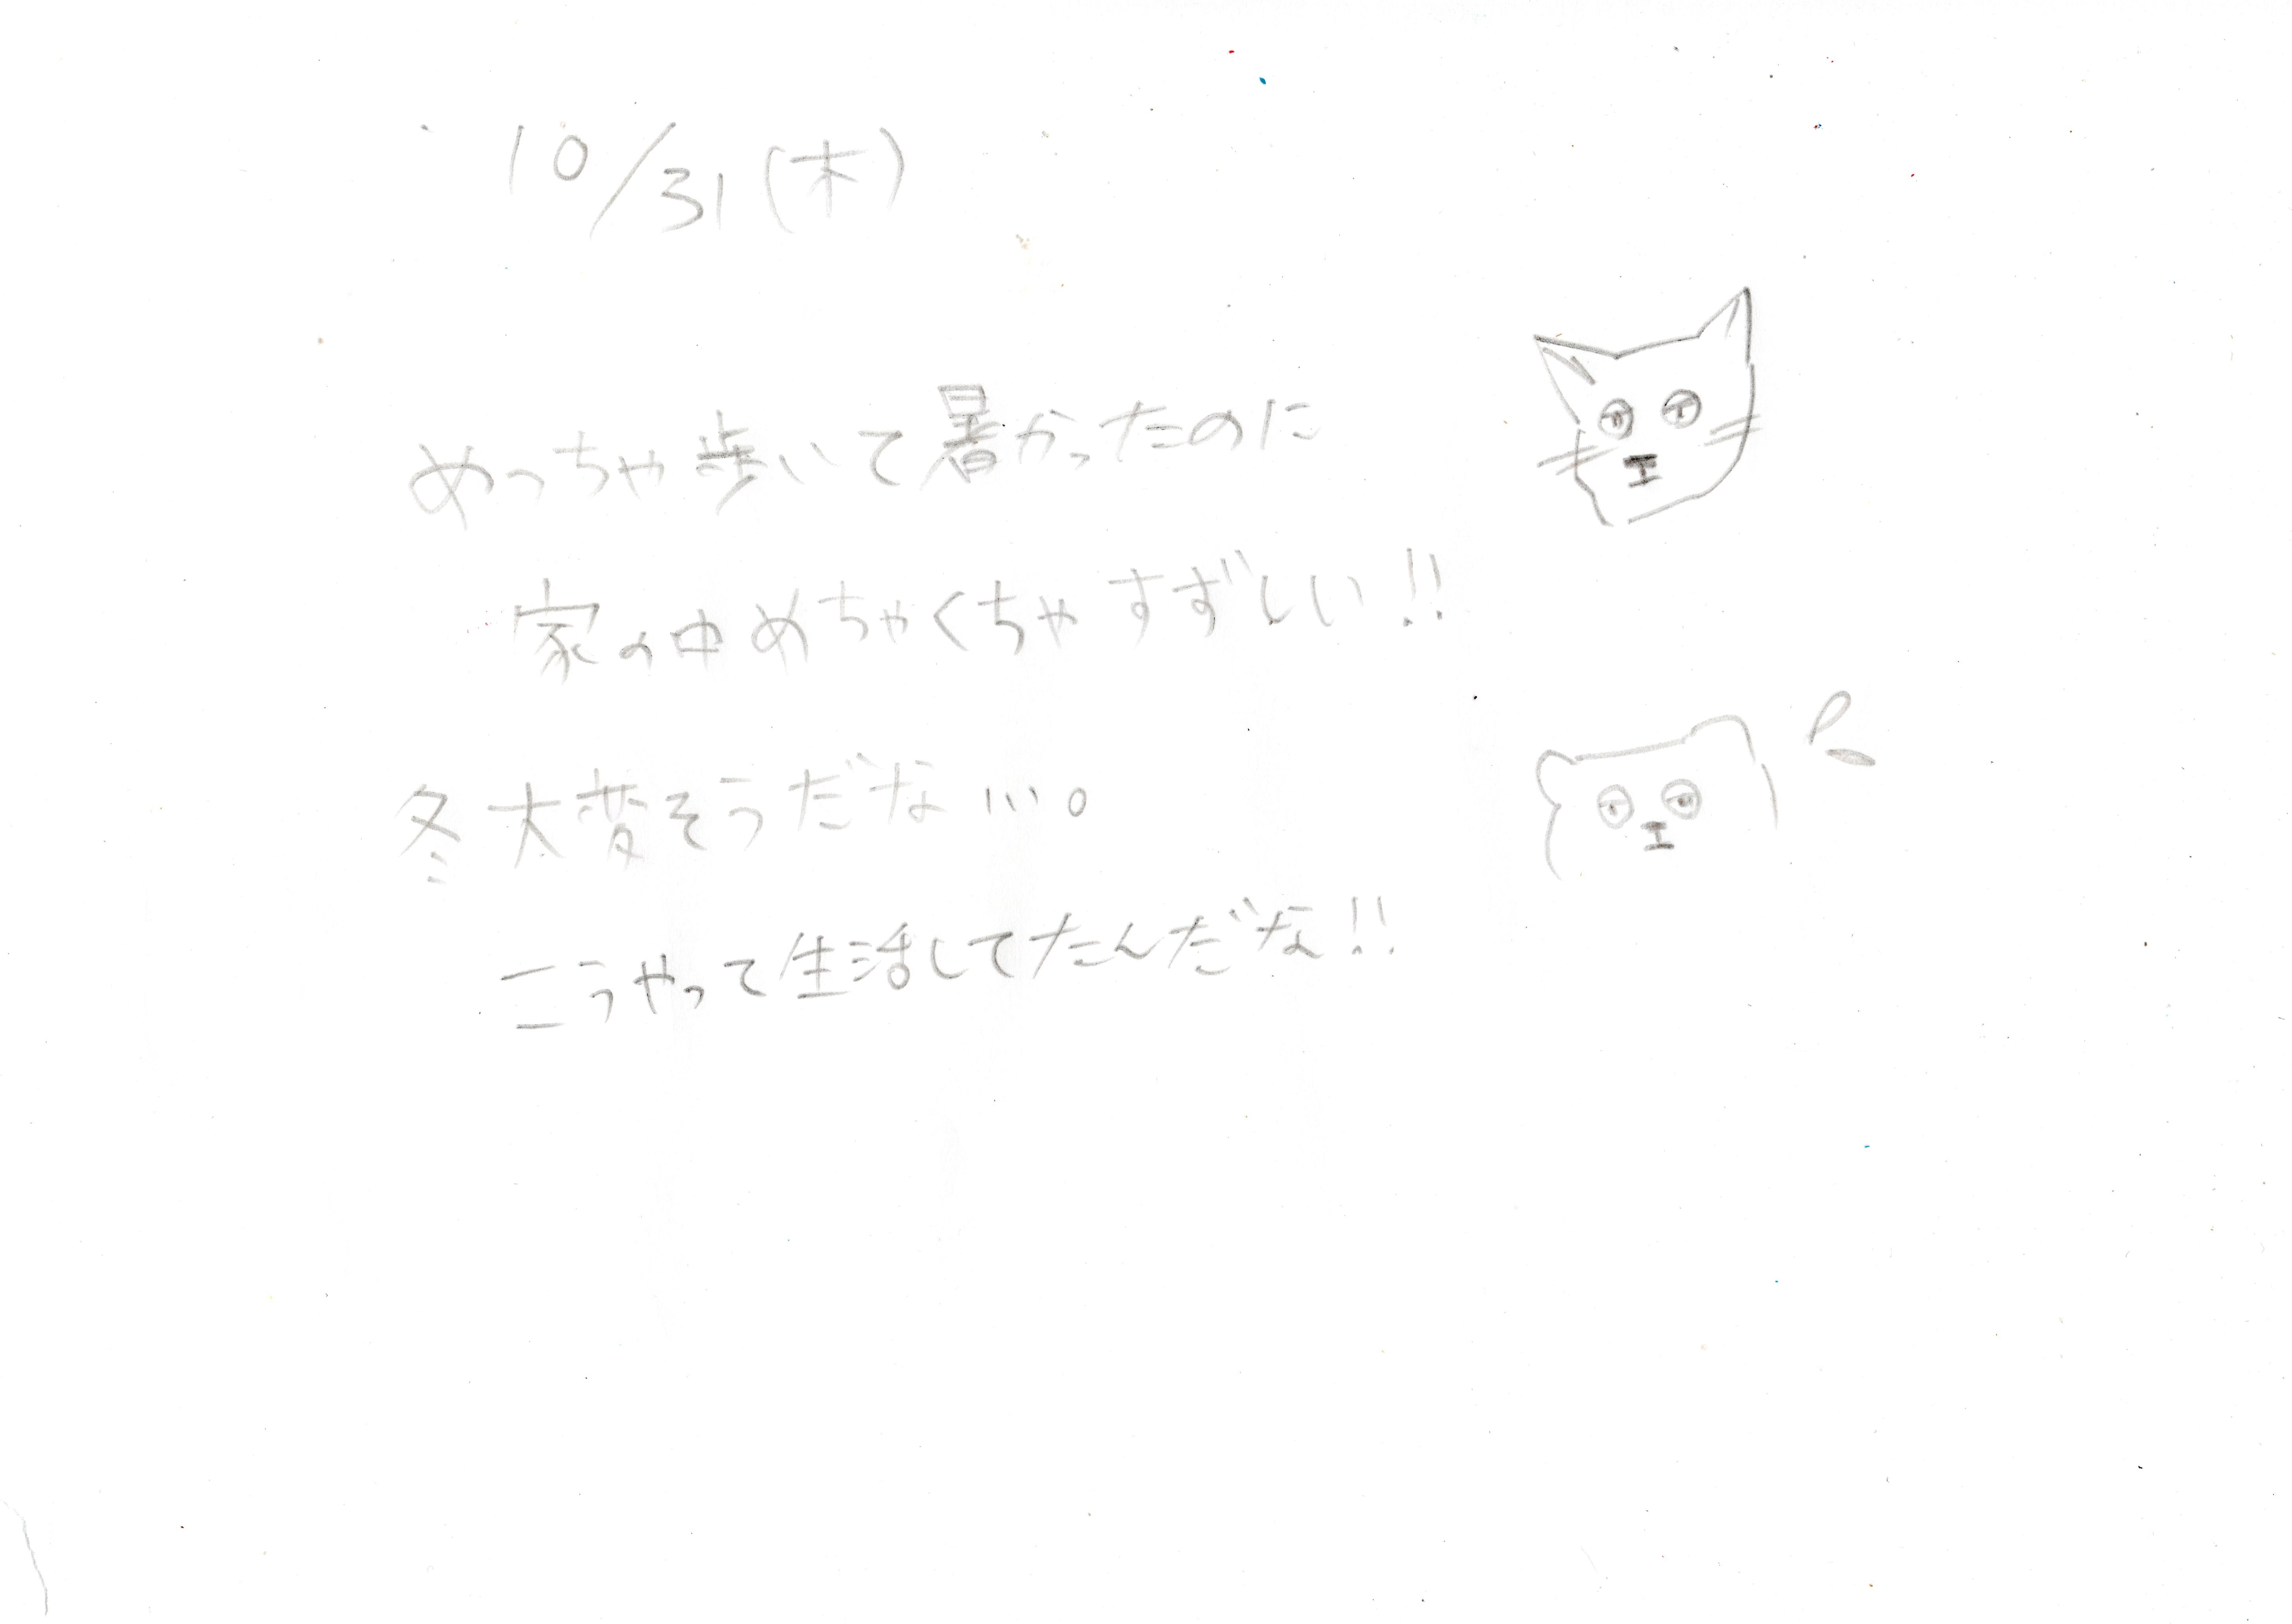 10/31(木)
めっちゃ歩いて暑かったのに
家の中めちゃくちゃすずしい!!
冬大変そうだな…。
こうやって生活してたんだな!!